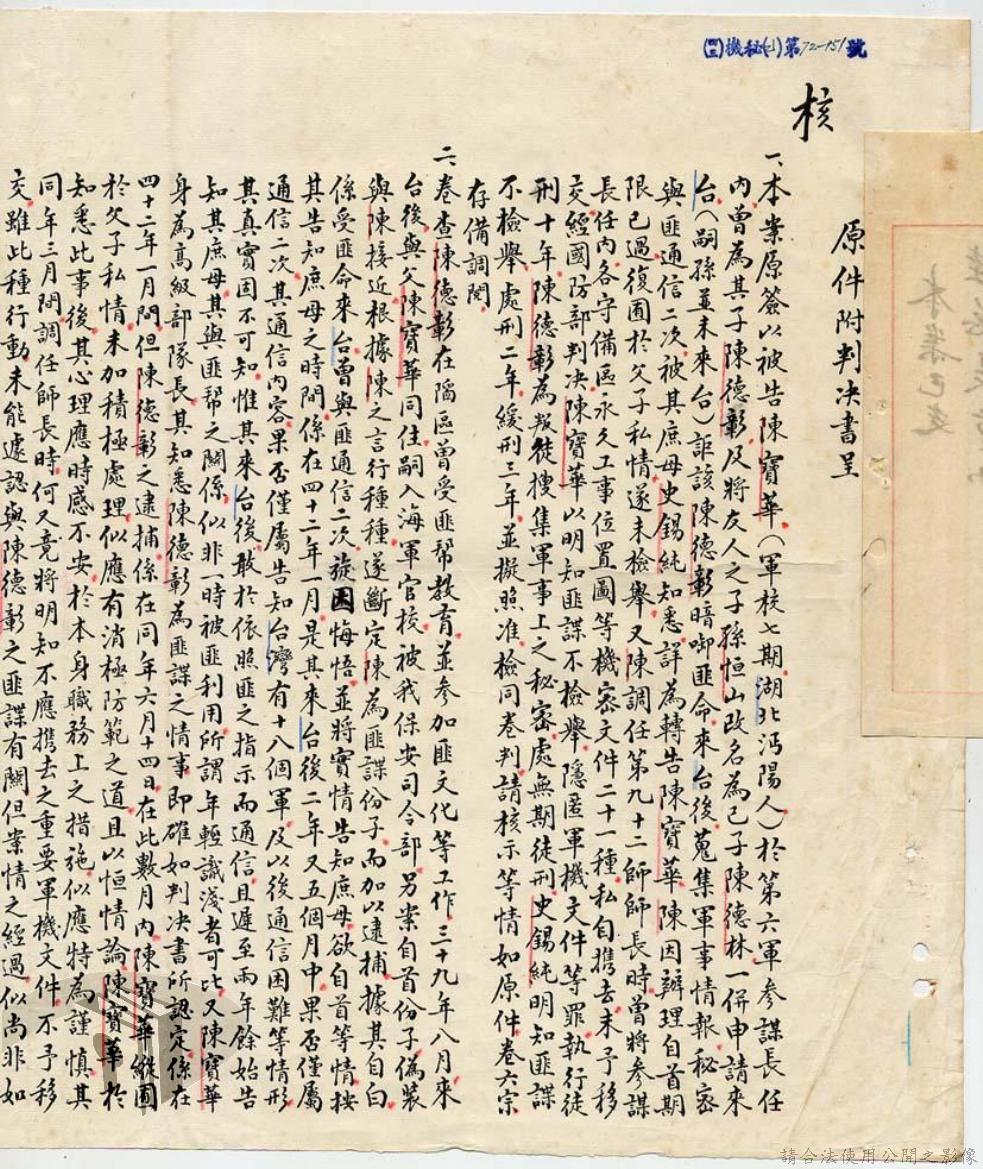 (四三)機秘(乙)第72-151號
核
原件附判决書呈
一、本案原簽以被告陳寶華(軍校七期湖北沔陽人)於第六軍參謀長任
內曾為其子陳德彰及將友人之子孫恒山改名為已子陳德林一併申請來
台(嗣孫並未來台)詎該陳德彰暗啣匪命來台後蒐集軍事情報秘密
與匪通信二次被其庶母史錫純知悉詳為轉告陳寶華陳因辦理自首期
限已過復囿於父子私情遂未檢舉又陳調任第九十二師師長時曾將參謀
長任內各守備區永久工事位置圖等機密文件二十一種私自携去未予移
交經國防部判决陳寶華以明知匪諜不檢舉隱匿軍機文件等罪執行徒
刑十年陳德彰為叛徒搜集軍事上之秘密處無期徒刑史錫純明知匪諜
不檢舉處刑二年緩刑三年並擬照准檢同卷判請核示等情如原件卷六宗
存備調閱
二、卷查陳德彰在陷區曾受匪幫教育並參加匪文化等工作三十九年八月來
台後與父陳寶華同住嗣入海軍官校被我保安司令部另案自首份子偽裝
與陳接近根據陳之言行種種遂斷定陳為匪諜份子而加以逮捕據其自白
係受匪命來台曾與匪通信二次旋因悔悟並將實情告知庶母欲自首等情按
其告知庶母之時間係在四十二年一月是其來台後二年又五個月中果否僅屬
通信二次其通信內容果否僅屬告知台灣有十八個軍及以後通信困難等情形
其真實固不可知惟其來台後敢於依照匪之指示而通信且遲至兩年餘始告
知其庶母其與匪幫之關係似非一時被匪利用所謂年輕識淺者可比又陳寶華
身為高級部隊長其知悉陳德彰為匪諜之情事即確如判决書所認定係在
四十二年一月間但陳德彰之逮捕係在同年六月十四日在此數月內陳寶華縱囿
於父子私情未加積極處理似應有消極防範之道且以恒情論陳寶華於
知悉此事後其心理應時感不安於本身職務上之措施似應特為謹慎其
同年三月間調任師長時何又竟將明知不應携去之重要軍機文件不予移
交雖此種行動未能遽認與陳德彰之匪諜有關但案情之經過似尚非如
請合法使用公開之影像